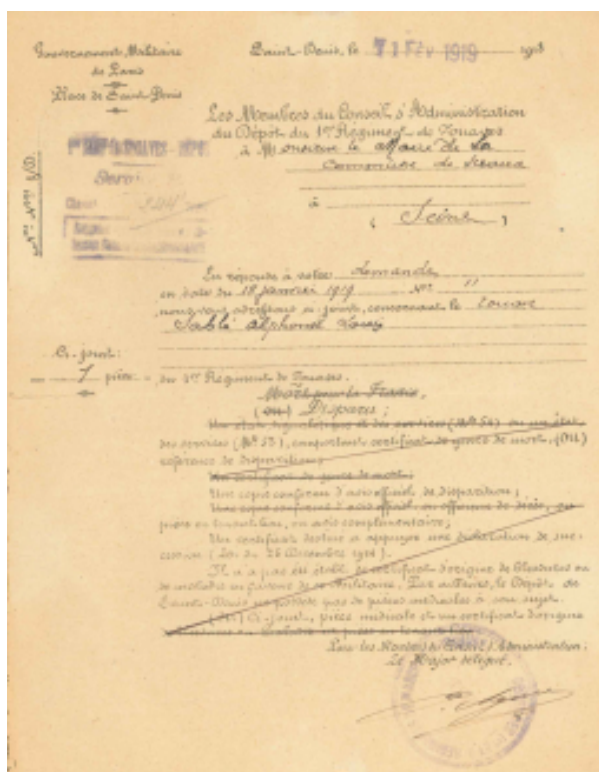 Gouvernement Militaire
de Paris
Place de Saint-Denis
Saint-Denis, le 11 Fév 1919 191
Les Membres du Conseil d'Administration
du Dépôt du 1er Régiment de Zouaves
à Monsieur le Maire de la
Commune de Sceaux
à
(Seine)
En réponse à votre demande
en date du 18 Janvier 1919 No 11
nous vous adressons ci-joint, concernant le Zouave
Sablé Alphonse Louis
Ci-joint:
1 pièce
du 1er Régiment de Zouaves.
Mort pour la France,
(ou) Disparu;
des services (No 57), comportant certificat de genre de mort, (OU)
référence de disparition.
Un certificat de genre de mort;
Une copie conforme d'avis officiel de disparition;
Une copie conforme d'avis officiel ou officieux de décès, ou
avis complémentaire;
Un certificat destiné à appuyer une déclaration de suc-
cession (Loi du 26 Décembre 1914).
Il n'a pas été établi de certificat d'origine de blessures ou
de maladies en faveur de ce Militaire. Par ailleurs, le Dépôt de
Saint-Denis ne possède pas de pièces médicales à son sujet.
(OU) Ci-joint, pièce médicale et un certificat d'origine
Pour les Membres du Conseil d'Administration:
Le Major délégué,